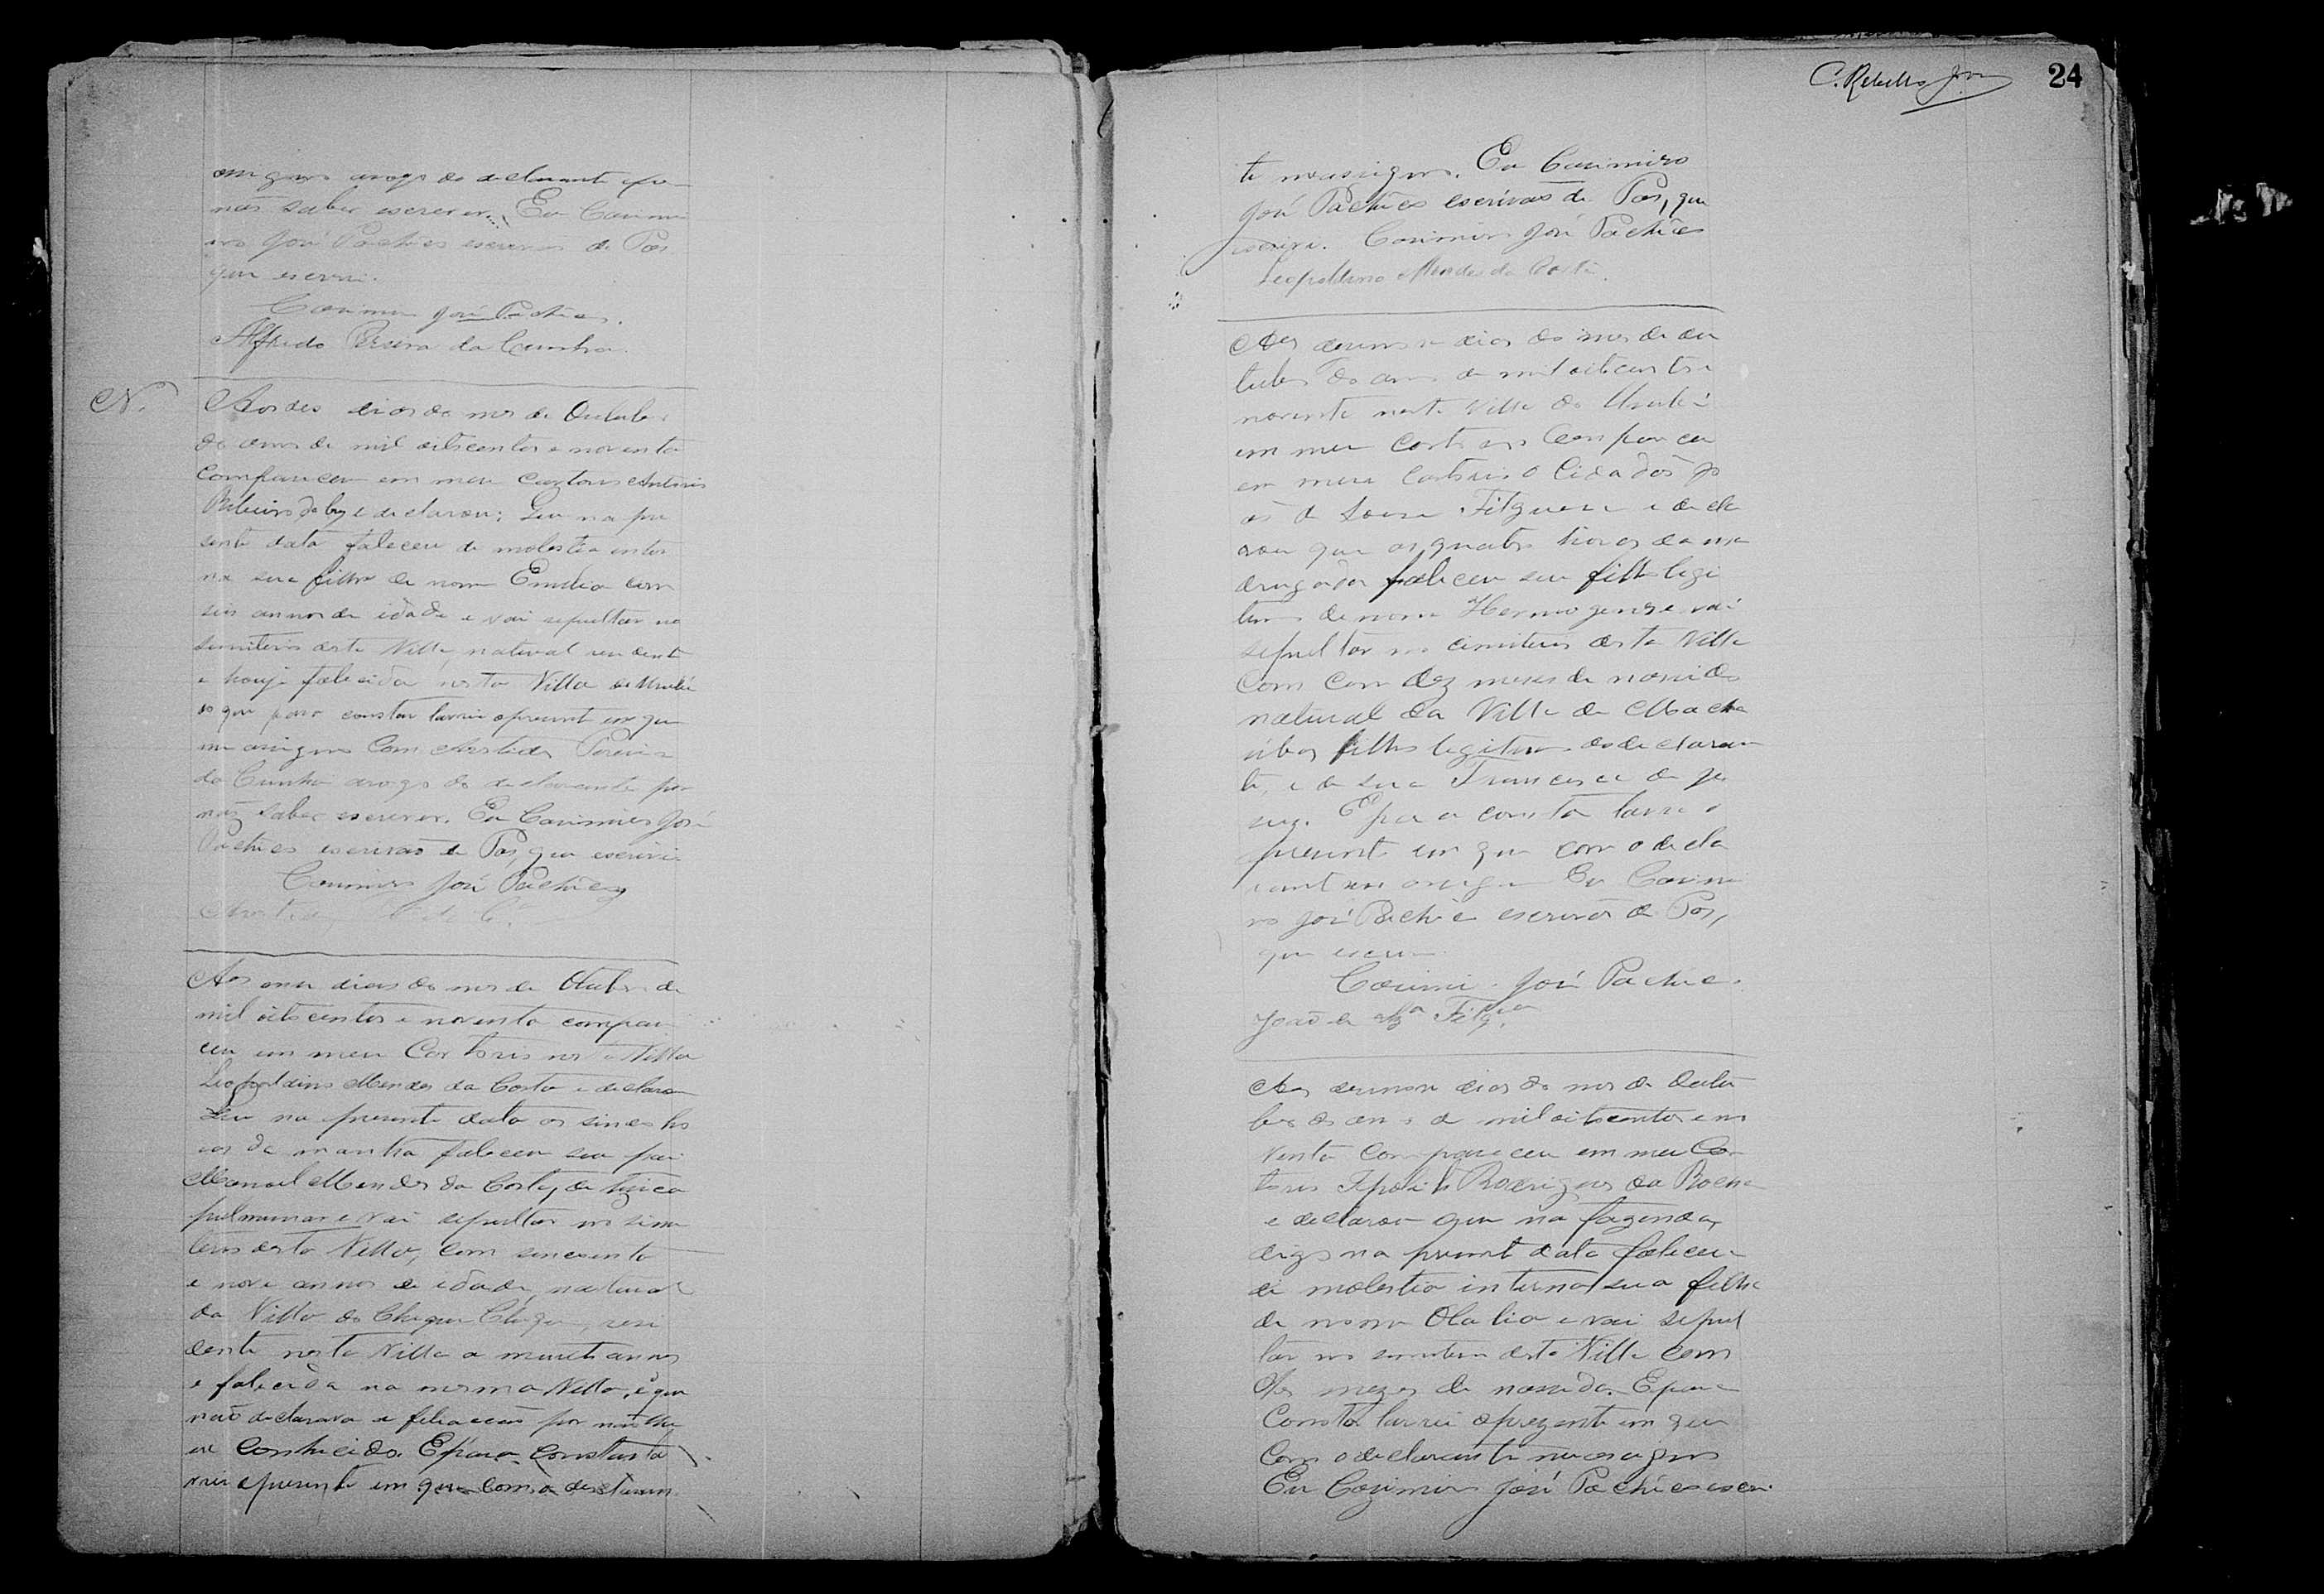 assigno arogo do declarante por
não saber escrever. Eu Casimi
ro José Pachêco escrivão de Pas
que escrevi.
Casimiro José Pachêco.
Alfredo Pereira da Cunha
N.
Aos des dias do mes de Outubro
do anno de mil oitocentos e noventa
compareceu em meu Cartorio Antonio
Ribeiro da e declarou: Que na pre
sente data faleceu de molestia inter
na sua filha de nome Emilia com
seis annos de idade e vai sepultar no
semiterio desta Villa, natural residente
e houje falecida nesta Villa do
do que para constar lavrei o presente em que
me assigno Com Aristides Pereira
da Cunha arogo do declarante por
não saber escrever. Eu Casimiro José
Pachêco escrivão de Pas, que escrevi
Casimiro José Pachêco
Aos onze dias do mes de Otubro de
mil oitocentos e noventa compare
ceu em meu Cartorio nesta Villa
Leopoldino Mendes da Costa e declarou
Que na presente data as sinco ho
ras da manhã faleceu seu pai
Manoel Mendes da Costa, de tizica
pulmunar e vai sepultar no simi
terio desta Villa, com sincoenta
e nove annos de idade, natural
da Villa do Chique Chique, resi
dente nesta Villa a muitos annos
e falecida na mesma Villa, e que
não declarava a filiacção por não lhe
ser conhecido. E para constar la
vrei o presente em que com o declaran
C. Rebello Jor
24
te me assigno. Eu Casimiro
José Pachêco escrivão de Pas, que
escrivi. Casimiro José Pachêco
Leopoldino Mendes da Costa.
Aos desenove dias do mes de Ou
tubro do anno de mil oitocentos e
noventa nesta Villa do
em meu cartorio Compareceu
em meu Cartorio o Cidadão Jo
ão de Souza Filgueira e decla
rou que as quatro horas da ma
drugada faleceu seu filho legi
timo de nome Hermogenes e vai
sepultar no cimiterio desta Villa
Com com dez meses de nascido
natural da Villa de Macha
úbas filho legitimo do declaran
te, e de sua Francisca de Je
sus. E para constar lavrei o
presente em que com o decla
rante me assigno Eu Casimi
ro José Pachêco escrivão de Pas,
que escrevi
Casimiro José Pachêco.
João de Sza Filgra
Aos desenove dias do mes de Outu
bro do anno de mil oitocentos e no
venta Compareceu em meu Car
torio Rodrigues da Rocha
e declarou que na fazenda,
digo na presente data faleceu
de molestia interna sua filha
de nome Olalia e vai sepul
tar no semiterio desta Villa com
mezes de nascida. E para
Constar lavrei o prezente em que
Com o declarante me assigno
Eu Cazimiro José Pachêco escri